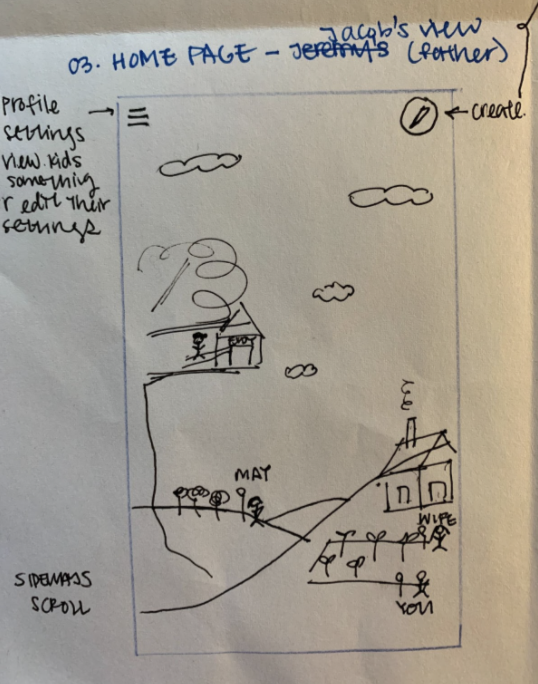 03. HOME PAGE - Jeremy's Jacob's view (father)
Profile
settings
view kids
something
r edit their
settings
create.
MAY
WIFE
YOU
SIDEWAYS
SCROLL